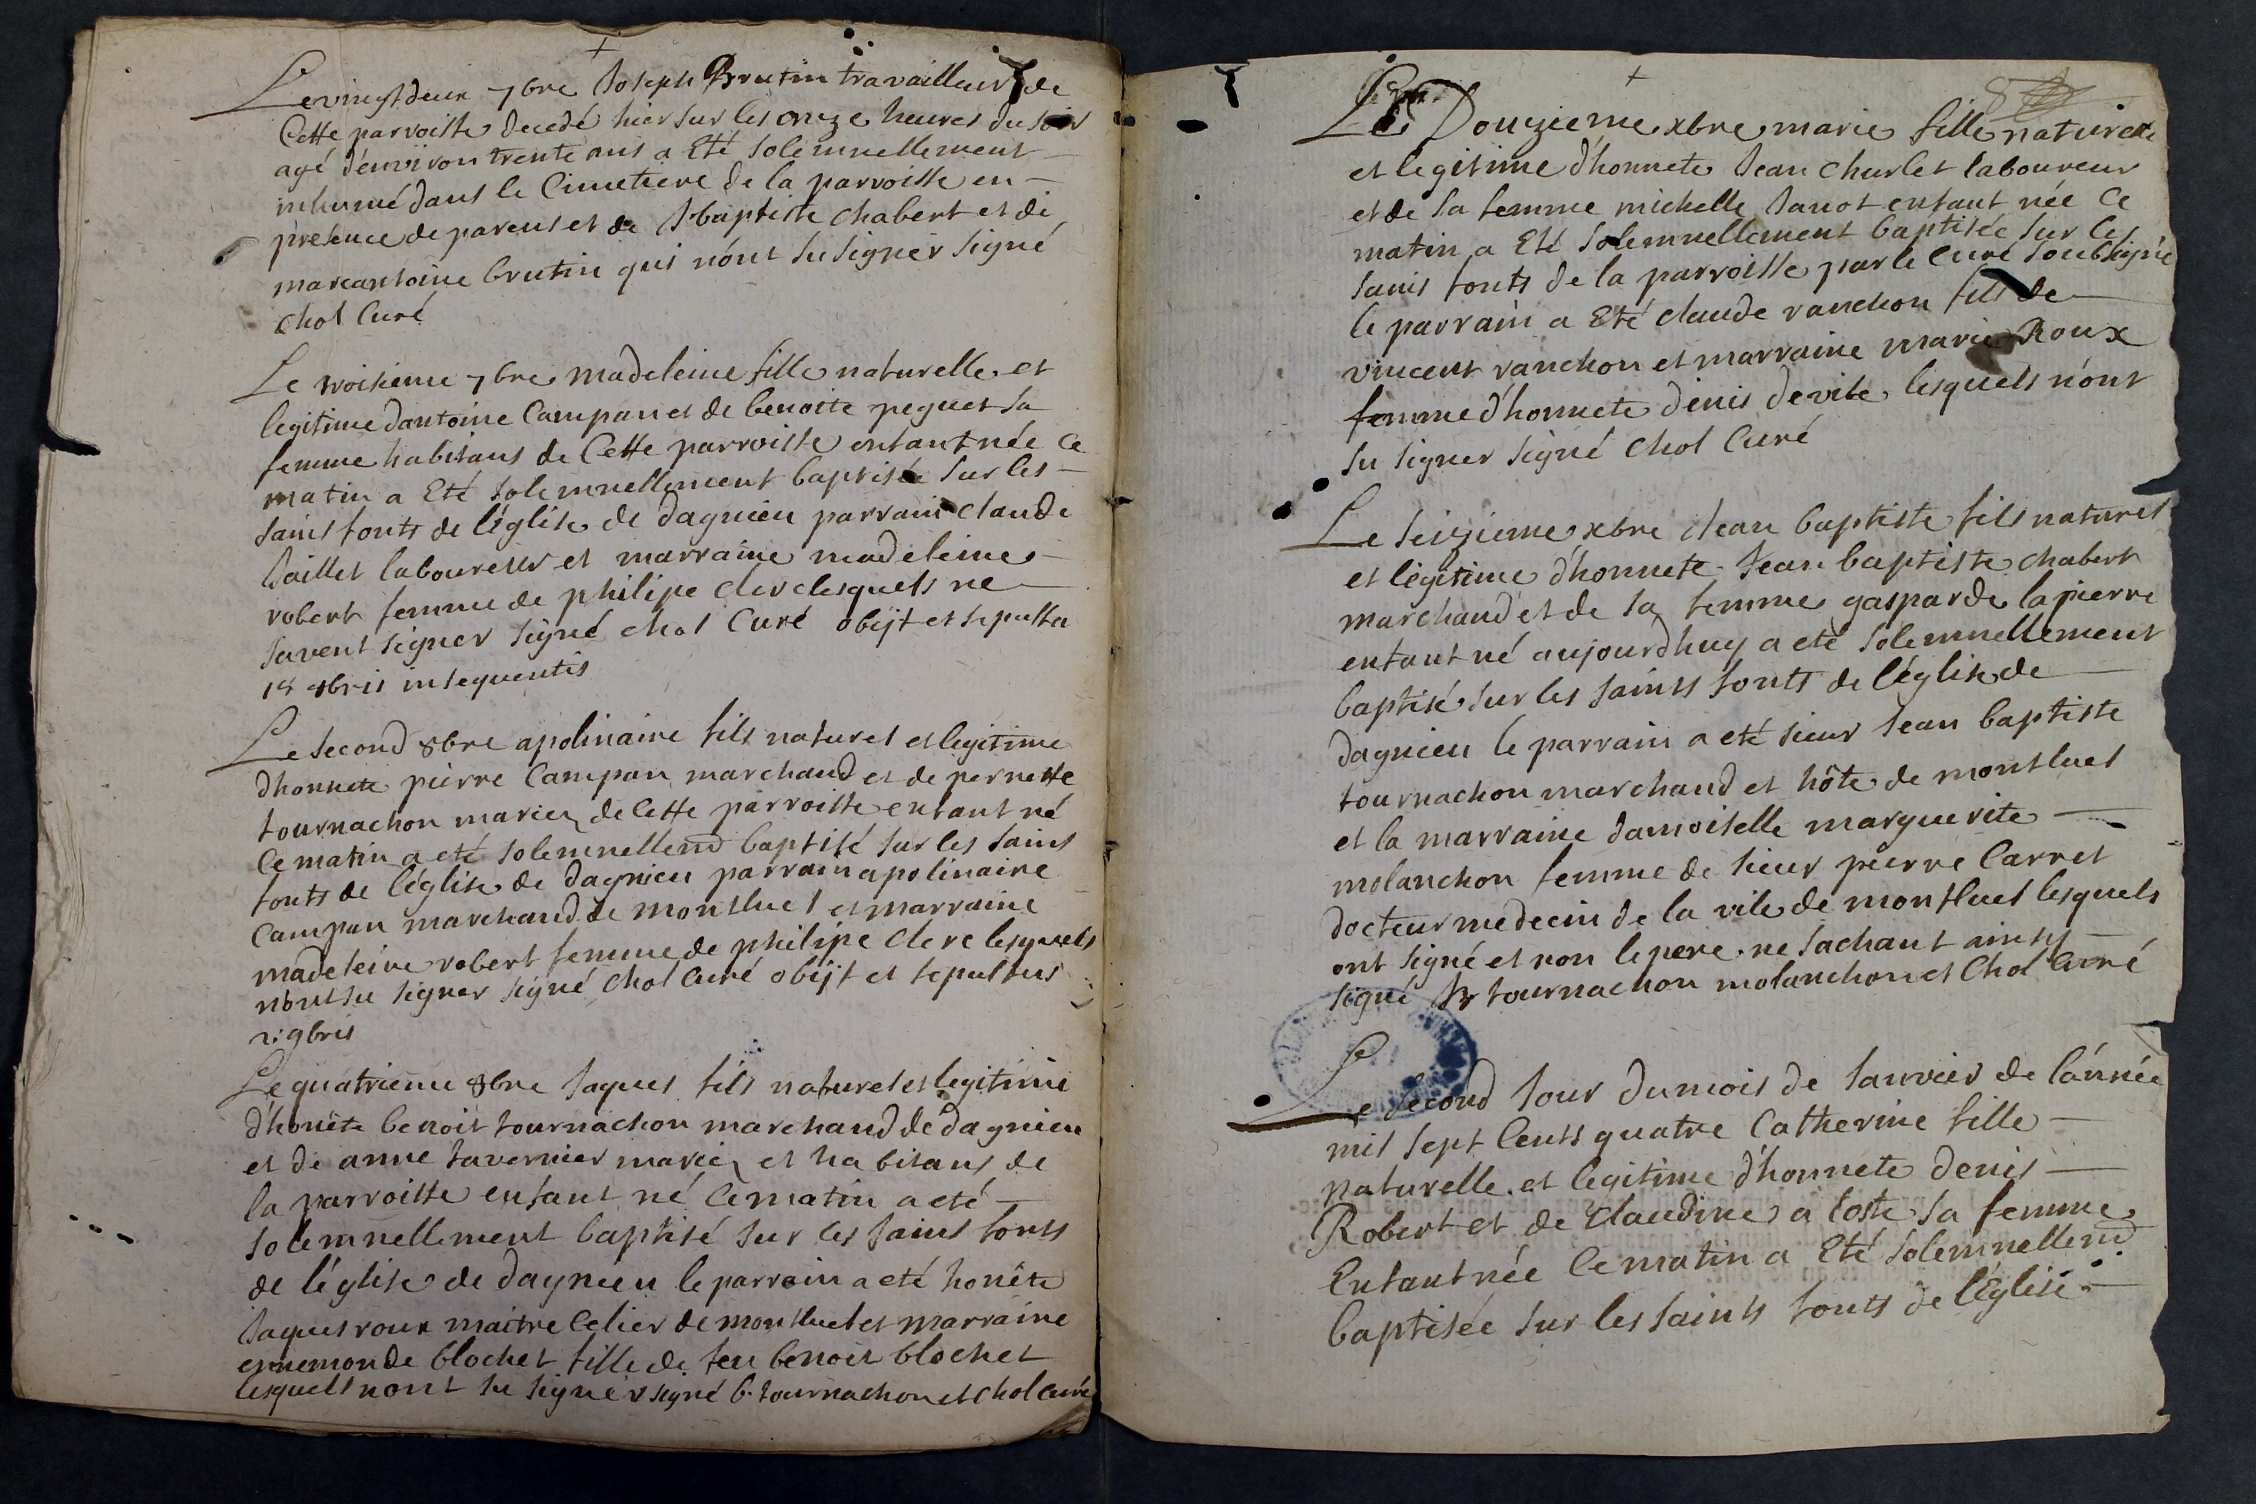 Le vingt deux 7bre Joseph Brutin travailleur de
Cette parroisse decedé hier sur les onze heures du soir
agé d'environ trente ans a Eté solemnellement
inhumé dans le Cimetiere de la parroisse en
presence de parens et de J baptiste chabert et de
marcantoine brutin qui n'ont su signer signé
chol Curé
Le troisieme 7bre madeleine fille naturelle et
legitime dantoine Campan et de benoite peguet sa
femme habitans de Cette parroisse enfant née Ce
matin a Eté solemnellement baptisée sur les
sains fonts de l'église de dagnieu parrain claude
Jaillet laboureur et marraine madeleine
robert femme de philipe clerc lesquels ne
savent signer signé chol Curé obijt et sepulta
18 9bris insequentis
Le second 8bre apolinaire fils naturel et legitime
dhonnete pierre Campan marchand et de pernette
tournachon mariez de Cette parroisse enfant né
Ce matin a eté solemnellend baptisé sur les sains
fonts de l'église de dagnieu parrain apolinaire
Campan marchand de montluel et marraine
madeleine robert femme de philipe clerc lesquels
n'ont su signer signé chol curé obijt et sepultus
2: 9bris
Le quatrieme 8bre Jaques fils naturel et legitime
d'honête benoit tournachon marchand de dagnieu
et de anne tavernier mariez et habitans de
la parroisse enfant né Ce matin a eté
solemnellement baptisé sur les sains fonts
de l'église de dagnieu le parrain a eté honête
Jaques roux maitre Celier de montluel et marraine
ennemonde blochet fille de feu benoit blochet
lesquels n'ont su signer signé b. tournachon et chol curé
Le Douzieme xbre marie fille naturelle
et legitime d'honnete Jean churlet laboureur
et de sa femme michelle Janot enfant née Ce
matin a Eté solemnellement baptisée sur les
sains fonts de la parroisse par le Curé soubsigné
le parrain a Eté claude ranchon fils de
vincent ranchon et marraine marie Roux
femme d'honnete denis devile lesquels n'ont
su signer signé chol Curé
Le seizieme xbre Jean baptiste fils naturel
et légitime d'honnete Jean baptiste chabert
marchand et de sa femme gasparde lapierre
enfant né aujourdhuy a eté solemnellement
baptisé sur les saints fonts de l'église de
dagnieu le parrain a eté sieur Jean baptiste
tournachon marchand et hôte de montluel
et la marraine damoiselle marguerite
molanchon femme de sieur pierre Carret
docteur medecin de la vile de montluel lesquels
ont signé et non le pere ne sachant ainsy
signé Jb tournachon molanchon et Chol curé
Le second Jour du mois de Janvier de l'année
mil sept Cents quatre Catherine fille
naturelle et legitime d'honnete denis
Robert et de claudine a Coste sa femme
Enfant née Ce matin a Eté solemnellend
baptisée sur les saints fonts de l'Eglise